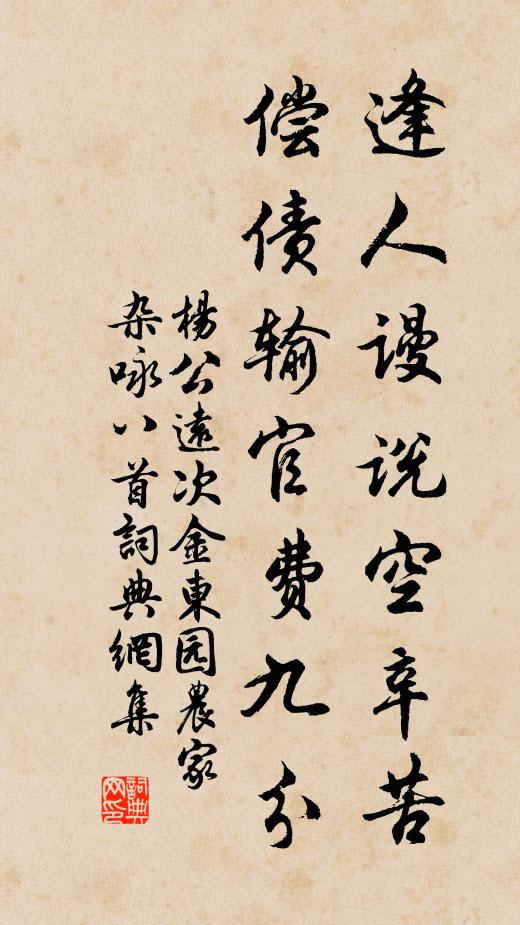 逢人谩说空辛苦
偿债输官费九分
楊公遠次金東园農家
杂咏八首詞典網集
詞典网印